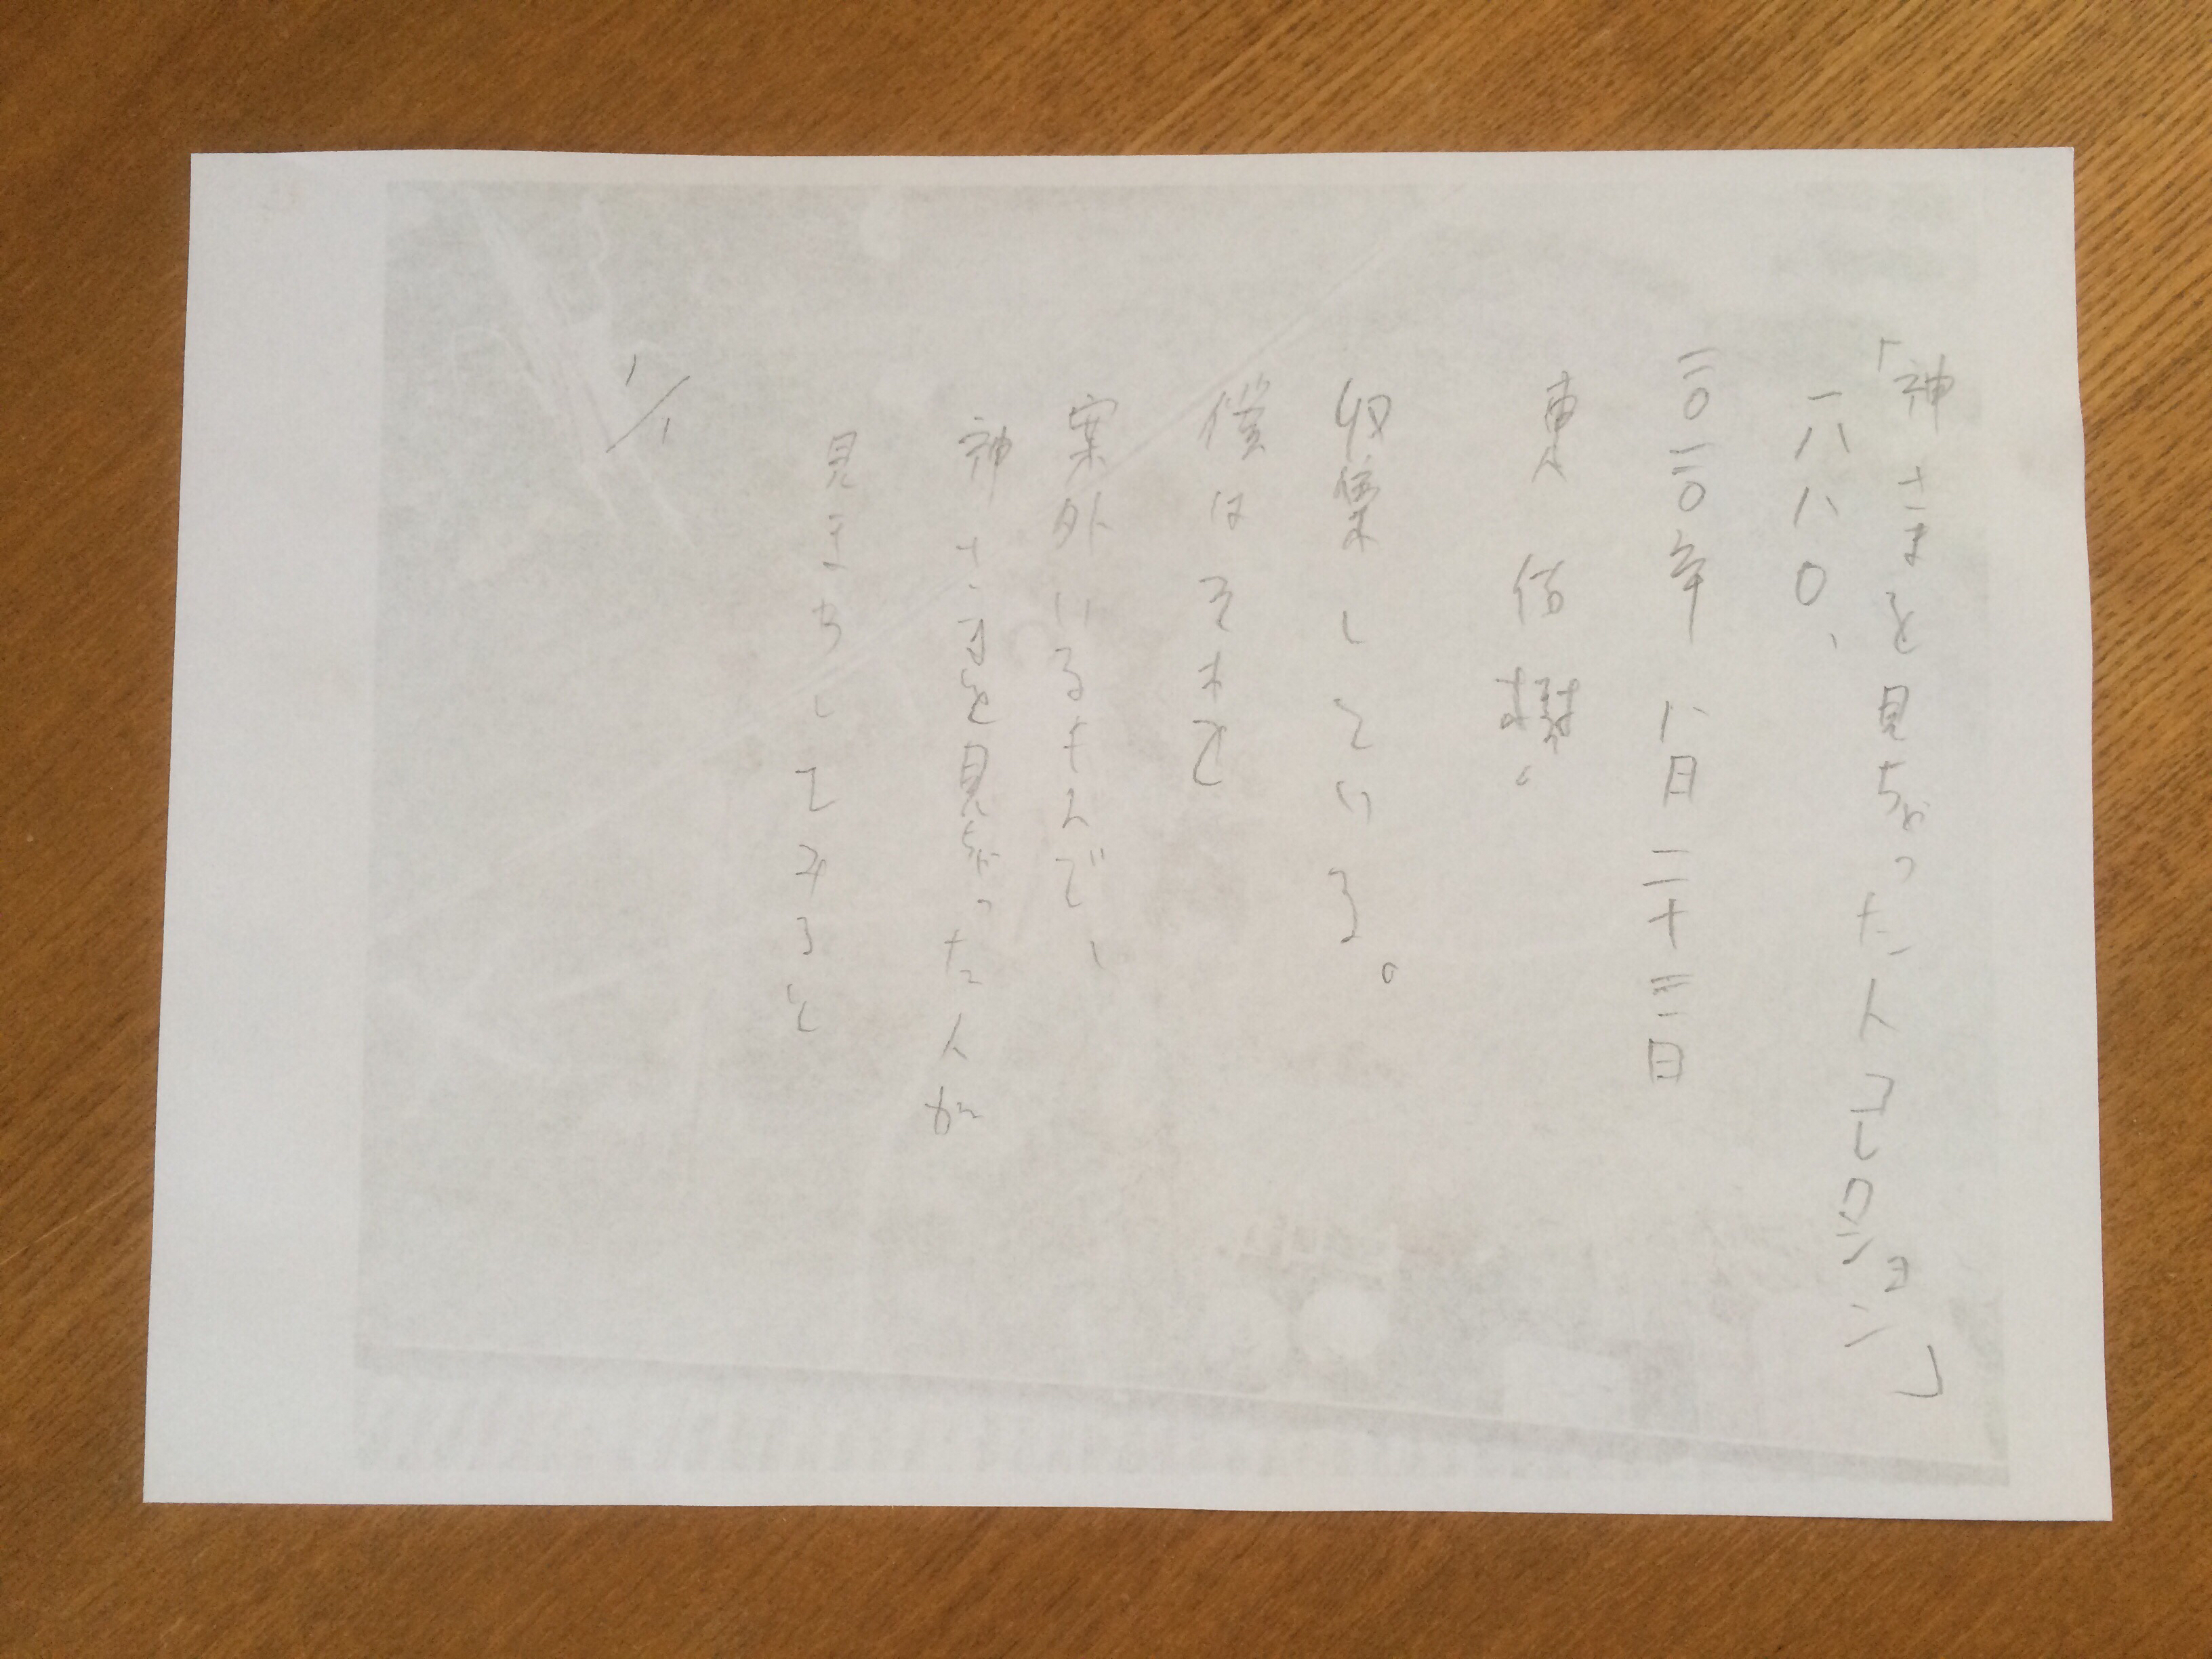 「神さまを見ちゃった人コレクション」
一八八〇、
二〇二〇年 八月二十三日
東 信樹。
収集している。
僕はそれを
案外いるもんで、
神さまを見ちゃった人が
見まわしてみると
1/1